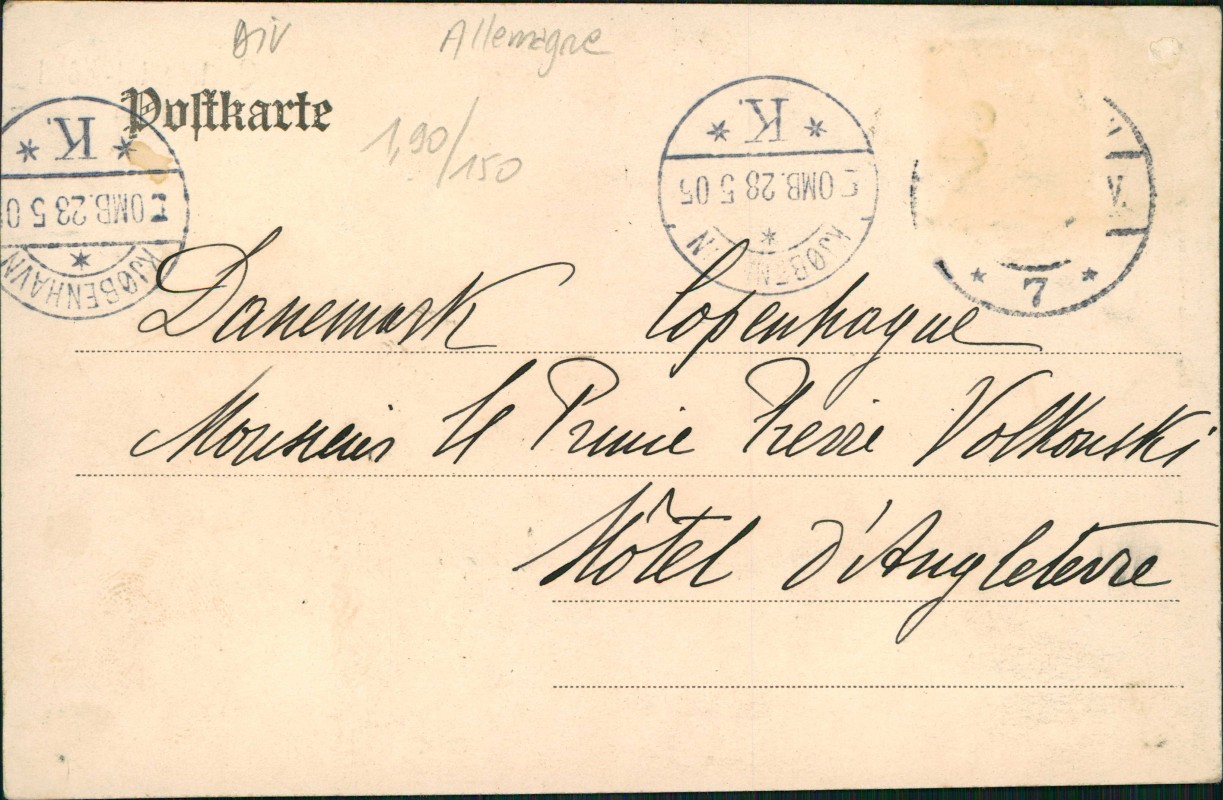 Div Allemagne
Postkarte
1,90/150
* K. *
OMB. 28 5 0
KJØBENHAVN
* K. *
OMB. 28 5 05
KJØBENHAVN
* 7 *
Danemark Copenhague
Monsieur le Prince Pierre Volkonski
Hôtel d'Angleterre